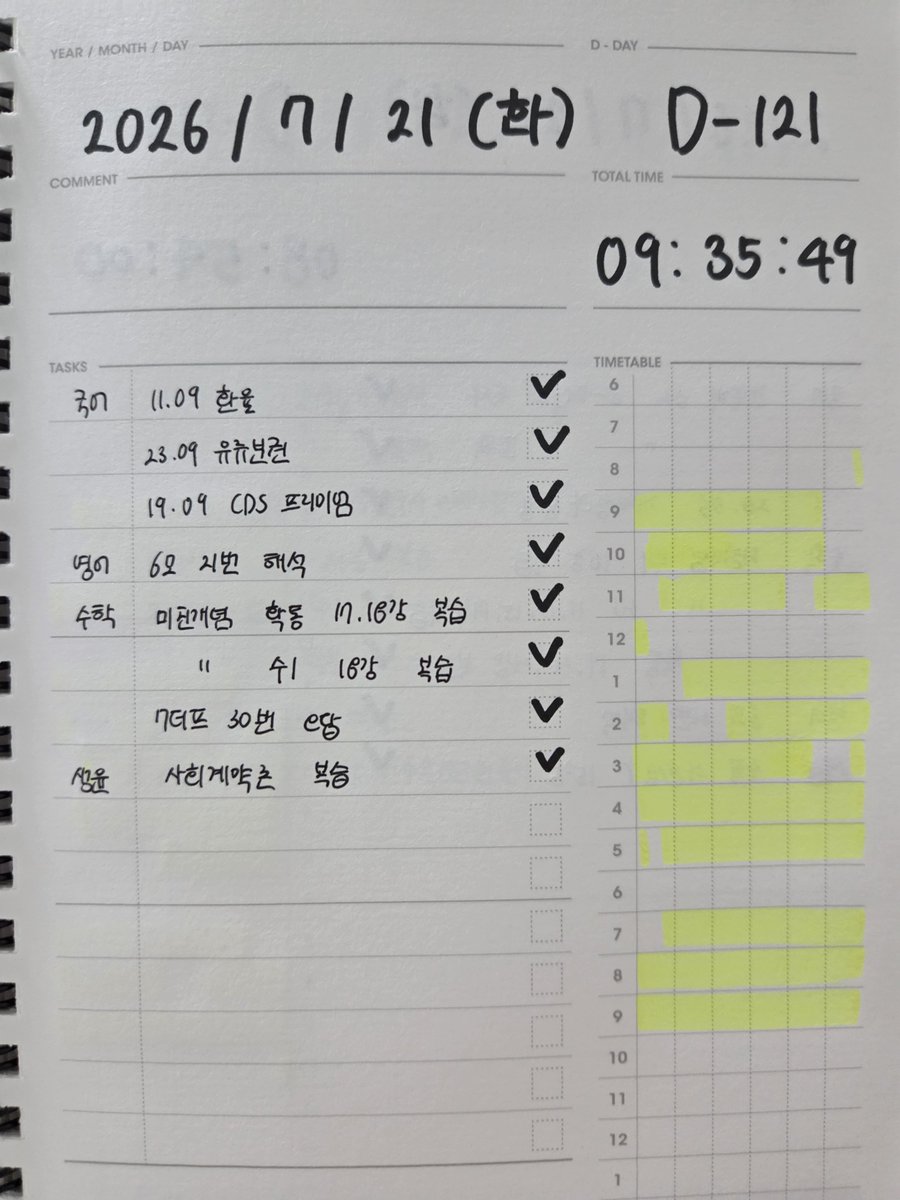 YEAR / MONTH / DAY
D - DAY
2026 / 7 / 21 (화)
D-121
COMMENT
TOTAL TIME
09:35:49
TASKS
국어 11.09 환율
23.09 유류분권
19.09 CDS 프리미엄
영어 6모 21번 해석
수학 미친개념 확통 17.18강 복습
" 수1 18강 복습
7더프 30번 e답
생윤 사회계약론 복습
TIMETABLE
6
7
8
9
10
11
12
1
2
3
4
5
6
7
8
9
10
11
12
1